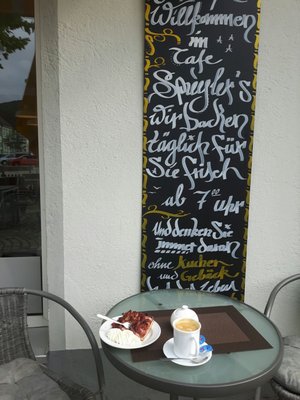 Willkommen
im
Cafe
Spegler's
Wir backen
täglich für
Sie frisch
ab 7⁰⁰ uhr
und denken Sie
immer daran
ohne Kuchen
und Gebäck